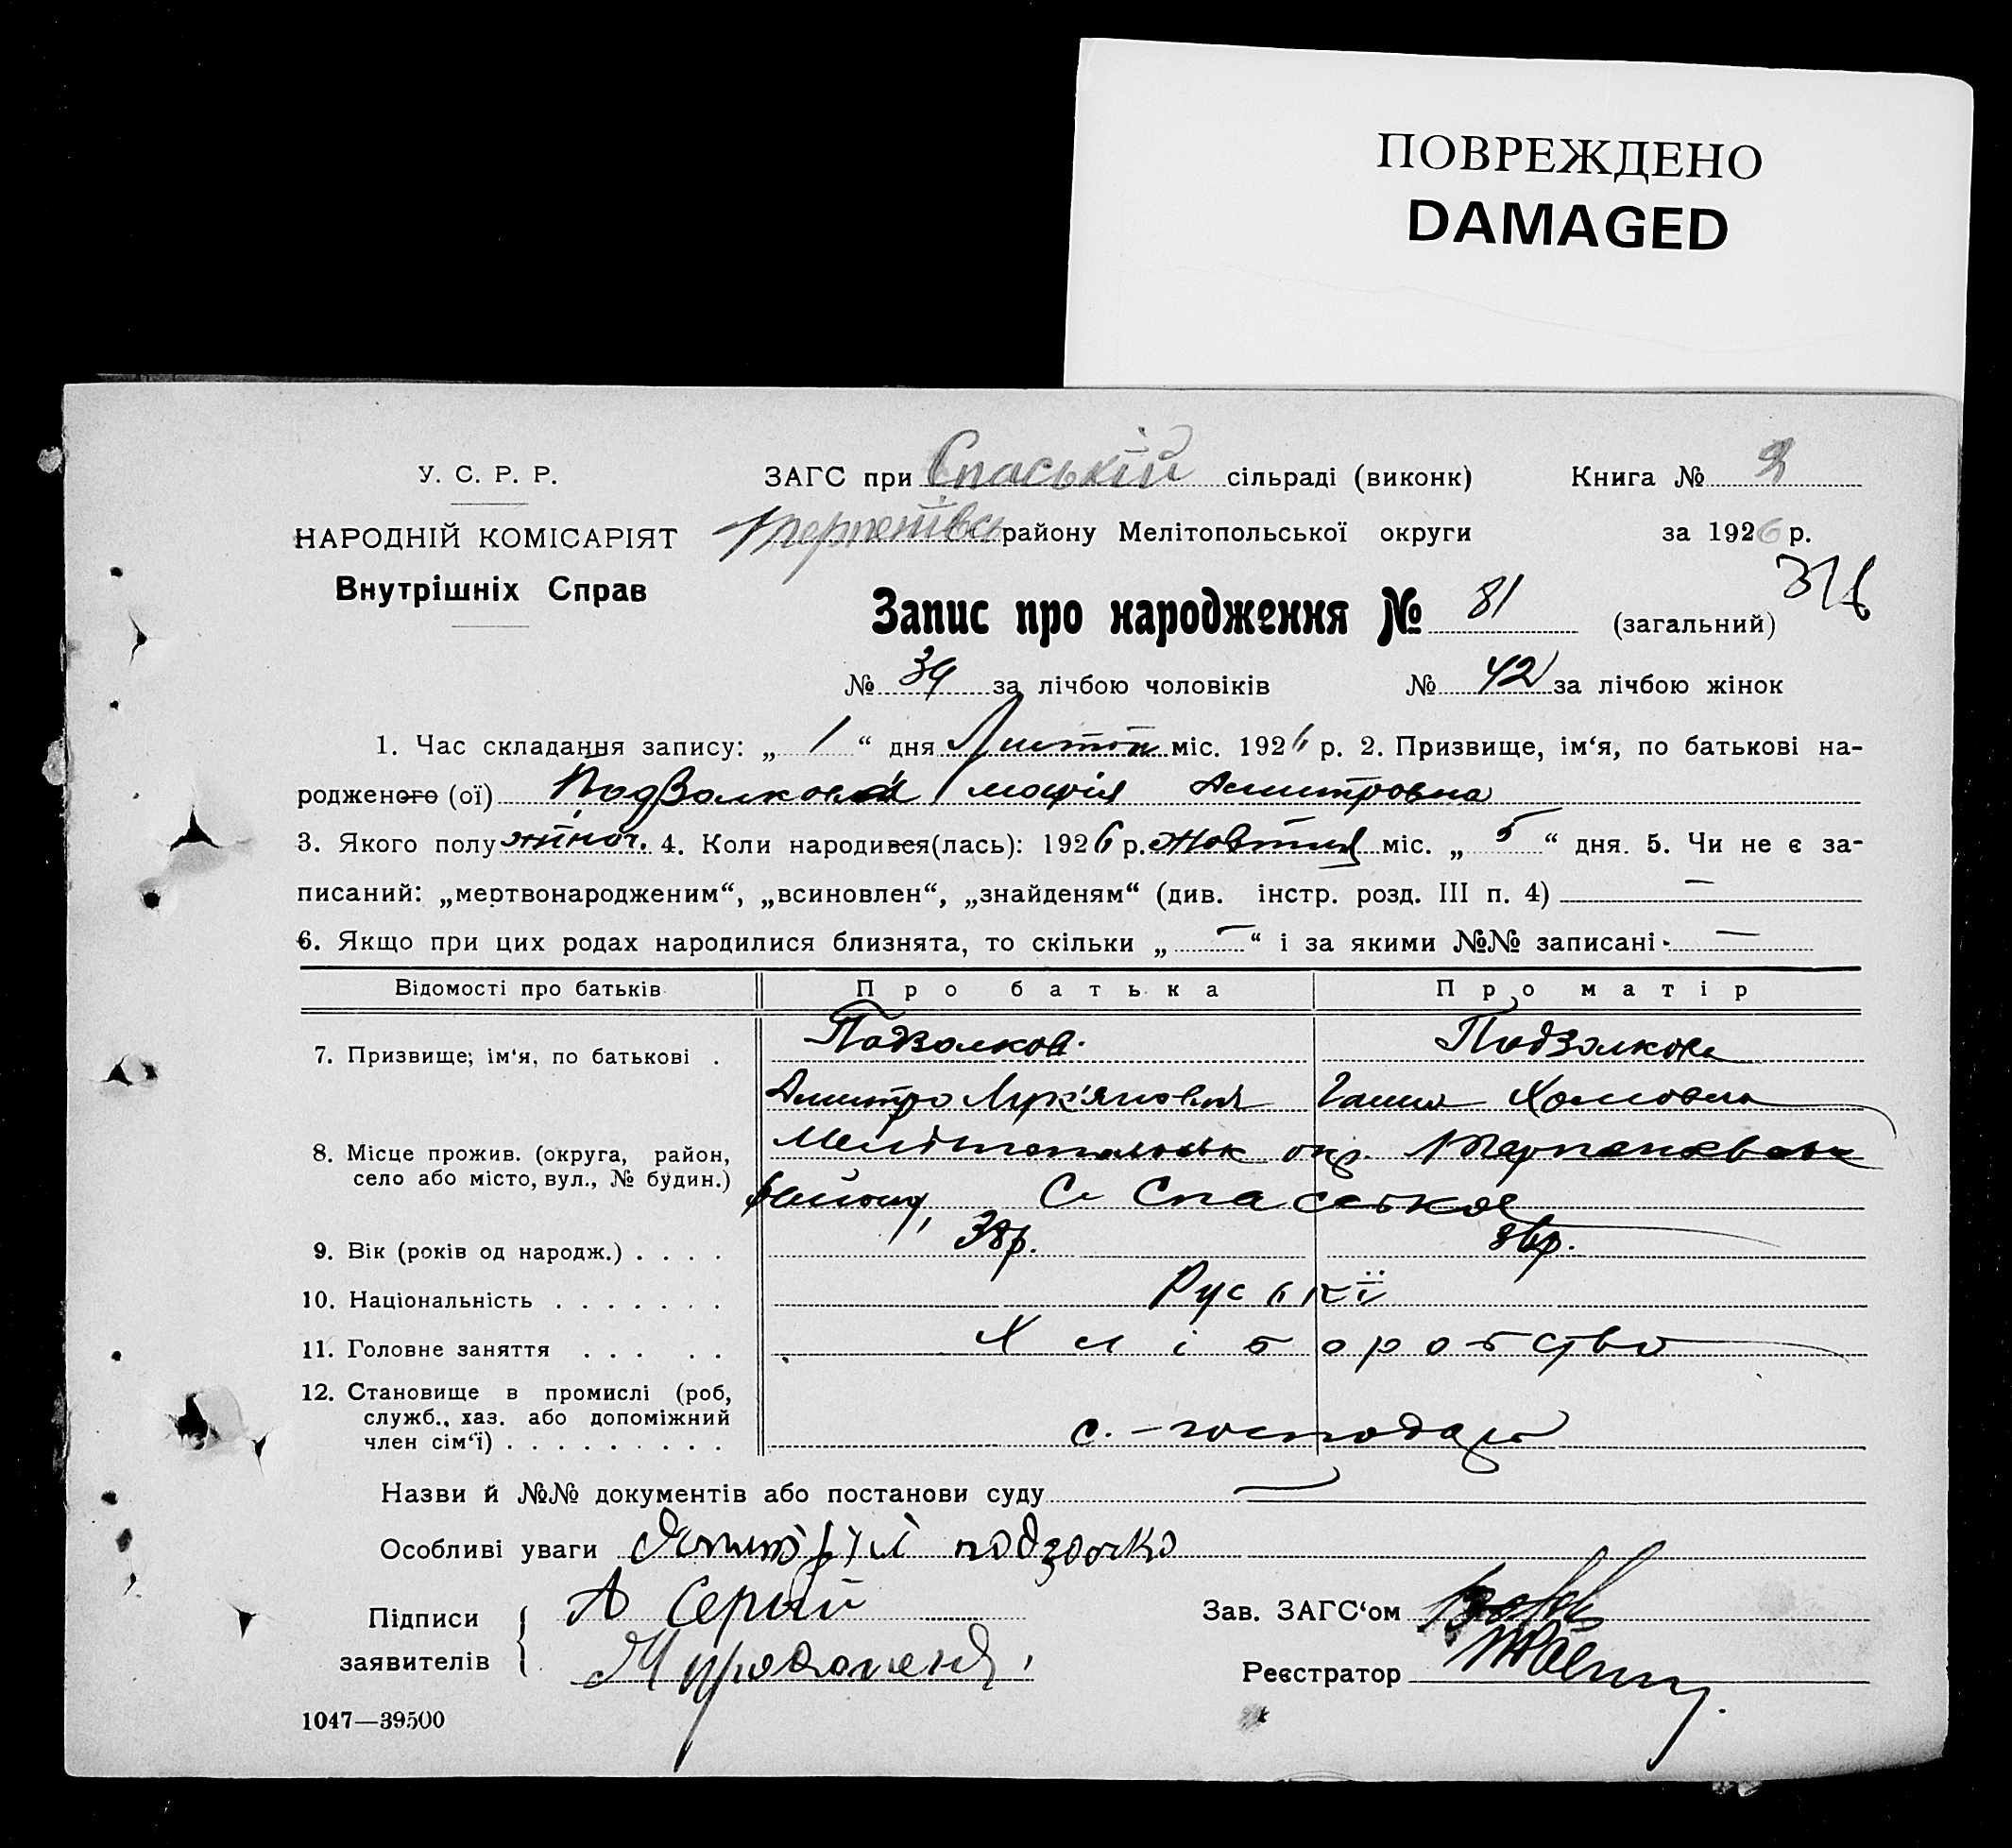 ПОВРЕЖДЕНО
DAMAGED
У. С. Р. Р.
НАРОДНІЙ КОМІСАРІЯТ
Внутрішніх Справ
ЗАГС при Спаській сільраді (виконк) Книга № 2
Терпенівсь району Мелітопольської округи за 1926 р.
316
Запис про народження № 81 (загальний)
№ 39 за лічбою чоловіків № 42 за лічбою жінок
1. Час складання запису: „ 1 “ дня Листоп міс. 1926 р. 2. Призвище, ім‘я, по батькові на-
родженого (ої) Подзолкова Марія Дмитровна
3. Якого полу жіноч. 4. Коли народився(лась): 1926 р. Жовтня міс. „ 5 “ дня. 5. Чи не є за-
писаний: „мертвонародженим“, „всиновлен“, „знайденям“ (див. інстр. розд. III п. 4) —
6. Якщо при цих родах народилися близнята, то скільки „ — “ і за якими №№ записані —
Відомості про батьків Про батька Про матір
7. Призвище; ім‘я, по батькові . Подзолков Подзолкова
Дмитро Лук'янович Ганна Хомовна
8. Місце прожив. (округа, район, село або місто, вул., № будин.) Мелітопольськ окр. Терпенівськ
району, С Спаськое
9. Вік (років од народж.) . . . . 38р. 36р.
10. Національність . . . . . . . Руські
11. Головне заняття . . . . . Хліборобство
12. Становище в промислі (роб,
служб., хаз. або допоміжний
член сім‘ї) . . . . . . . . . с.-господар
Назви й №№ документів або постанови суду —
Особливі уваги
Підписи А Серый Зав. ЗАГС‘ом
заявителів Реєстратор
1047—39500